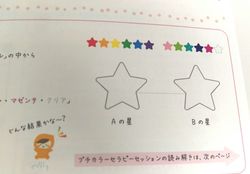 ル」の中から
・マゼンタ・クリア」
Aの星
Bの星
どんな結果かな〜?
プチカラーセラピーセッションの読み解きは、次のページ